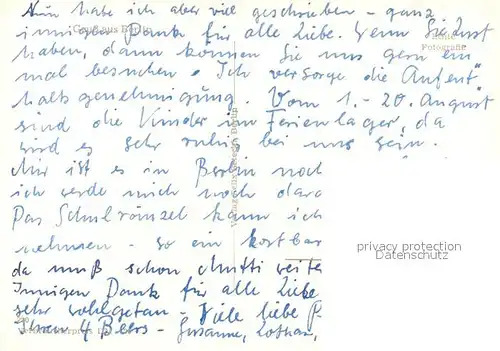 Nun habe ich aber viel geschrieben - ganz
innigen Dank für alle Liebe. Wenn Sie Lust
haben, dann können Sie uns gern ein
mal besuchen. Ich versorge die Aufent
haltsgenehmigung. Vom 1.-20. August
sind die Kinder im Ferienlager, da
wird es sehr ruhig bei uns sein.
Mir ist es in Berlin noch
ich werde mich noch dara
Das Schulränzel kann ich
nehmen - so ein kostbar
da muß schon Mutti weite
Innigen Dank für alle Liebe
sehr wohlgetan - Viele liebe
Ihren 4 Beers - Susanne, Lothar,
Gruß aus Berlin
Fotografie
privacy protection
Datenschutz